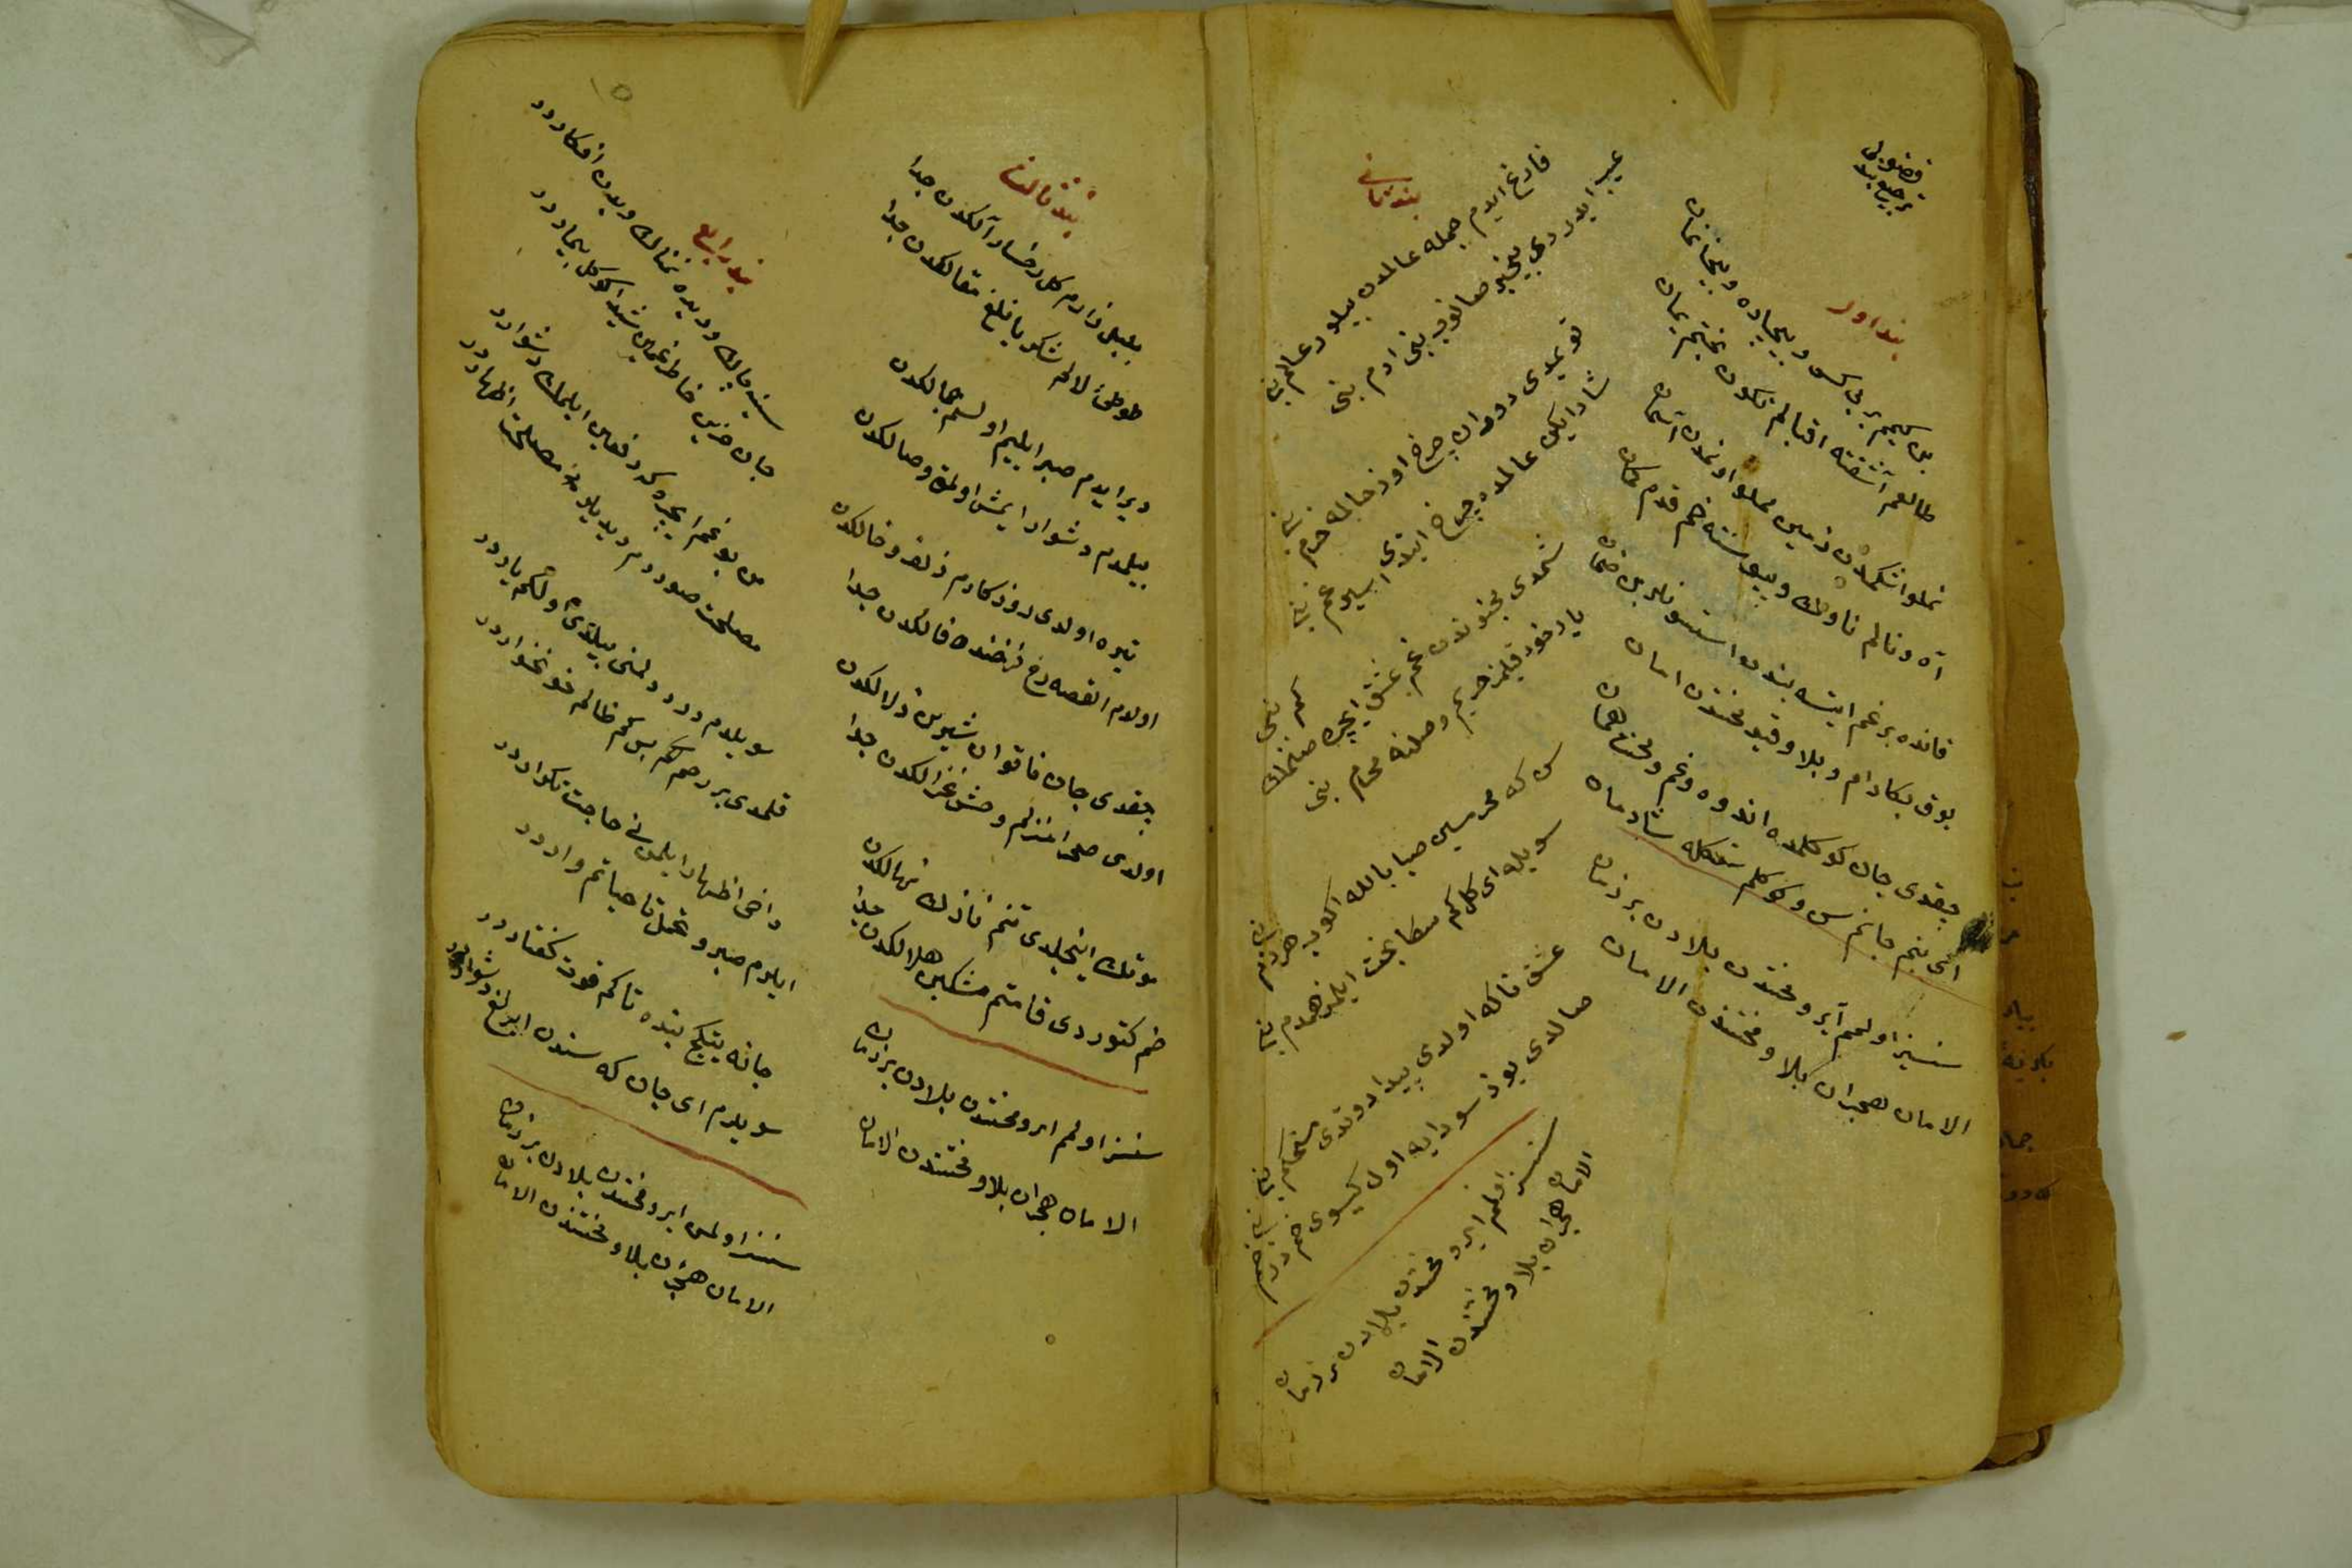 فضولی
ترجیع بند
بند اول
بن کیمم بر بی کس و بیچاره و بیخانمان
طالعم آشفته اقبالم نکون بختم یمان
نملو اشکمدن زمین مملو اونمدن آسمان
آه و نالم ناوک و پیوسته خم قدم کمان
قانده بر غم ایتسه بندن استنور بن ضمان
یوق بکا دام و بلا و قید محنتدن امان
چیقدی جان کوکلمده اندوه و غم و محنت همان
ای بنم جانم سن و کوکلم سنکله شادمان
سنسیز اولمم آیرو محنتدن بلادن بر زمان
الامان هجران بلا و محنتندن الامان
بند ثانی
فارغ ایدم جمله عالمدن بیلور عالم بنی
عیب ایدردی بیخبر صانوب بنی ادم بنی
قویمدی دوران چرخ اوز حالمه خرم بنی
شاد ایکن عالمده چرخ ایتدی اسیر غم بنی
شمدی مجنوندن غم عشق ایچره صنمک کم بنی
یار خود قیلمز حریم وصلنه محرم بنی
سن که محرمسین صبا بالله اکوب هر دم بنی
سویله ای کل کم سکا بخت ایلمز همدم بنی
عشق تا که اولدی پیدا دوتدی مستحکم بنی
صالدی یوز سودایه اول کیسوی خم در خم بنی
سنسز اولمم ایرو محنتدن بلادن بر زمان
الامان هجران بلا و محنتندن الامان
بند ثالث
بلبل زارم کل رخسار آلکدن جدا
طوطئ لالم شکر یانلغ مقالکدن جدا
دیر ایدم صبر ایلیم اولسم جمالکدن
بیلمدم دشوار ایمش اولمق وصالکدن
تیره اولدی روزکارم زلف و خالکدن
اولدم القصه رخ فرخنده فالکدن جدا
چیقدی جان ناتوان شیرین زلالکدن
اولدی صحرا منزلم وحشی غزالکدن جدا
موتک اینجلدی تنم نازک نهالکدن
خم کتوردی قامتم مشکین هلالکدن جدا
سنسز اولمم ایرو محنتدن بلادن بر زمان
الامان هجران بلا و محنتندن الامان
بند رابع
سینه چاک و دیده نمناک و بدن افکاردر
جان حزین خاطر غمین شیدا کوکل بیماردر
من بو غم ایچره که دفعین ایلمک دشواردر
مصلحت صوردم دیدیلر مصلحت اظهاردر
سویلدم دردلمنی بیلدی ولکم یاردر
قلمدی بر رحم کم بس کم ظالم خونخواردر
داخی اظهار ایلمن نی حاجت تکراردر
ایلرم صبر و تحمل تا حیاتم واردر
جانه یتیکج بنده تا کم قوت کفتاردر
سویلرم ای جان که سندن ایرلمغ دشواردر
سنسز اولمن ایرو محنتدن بلادن بر زمان
الامان هجران بلا و محنتندن الامان